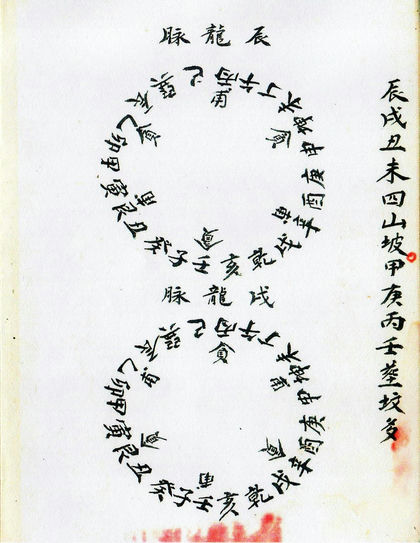 辰戌丑未四山坡甲庚丙壬塟坟多
辰龍脉
丙午丁未坤申庚酉辛戌乾亥壬子癸丑艮寅甲卯乙辰巽巳
戌龍脉
丙午丁未坤申庚酉辛戌乾亥壬子癸丑艮寅甲卯乙辰巽巳